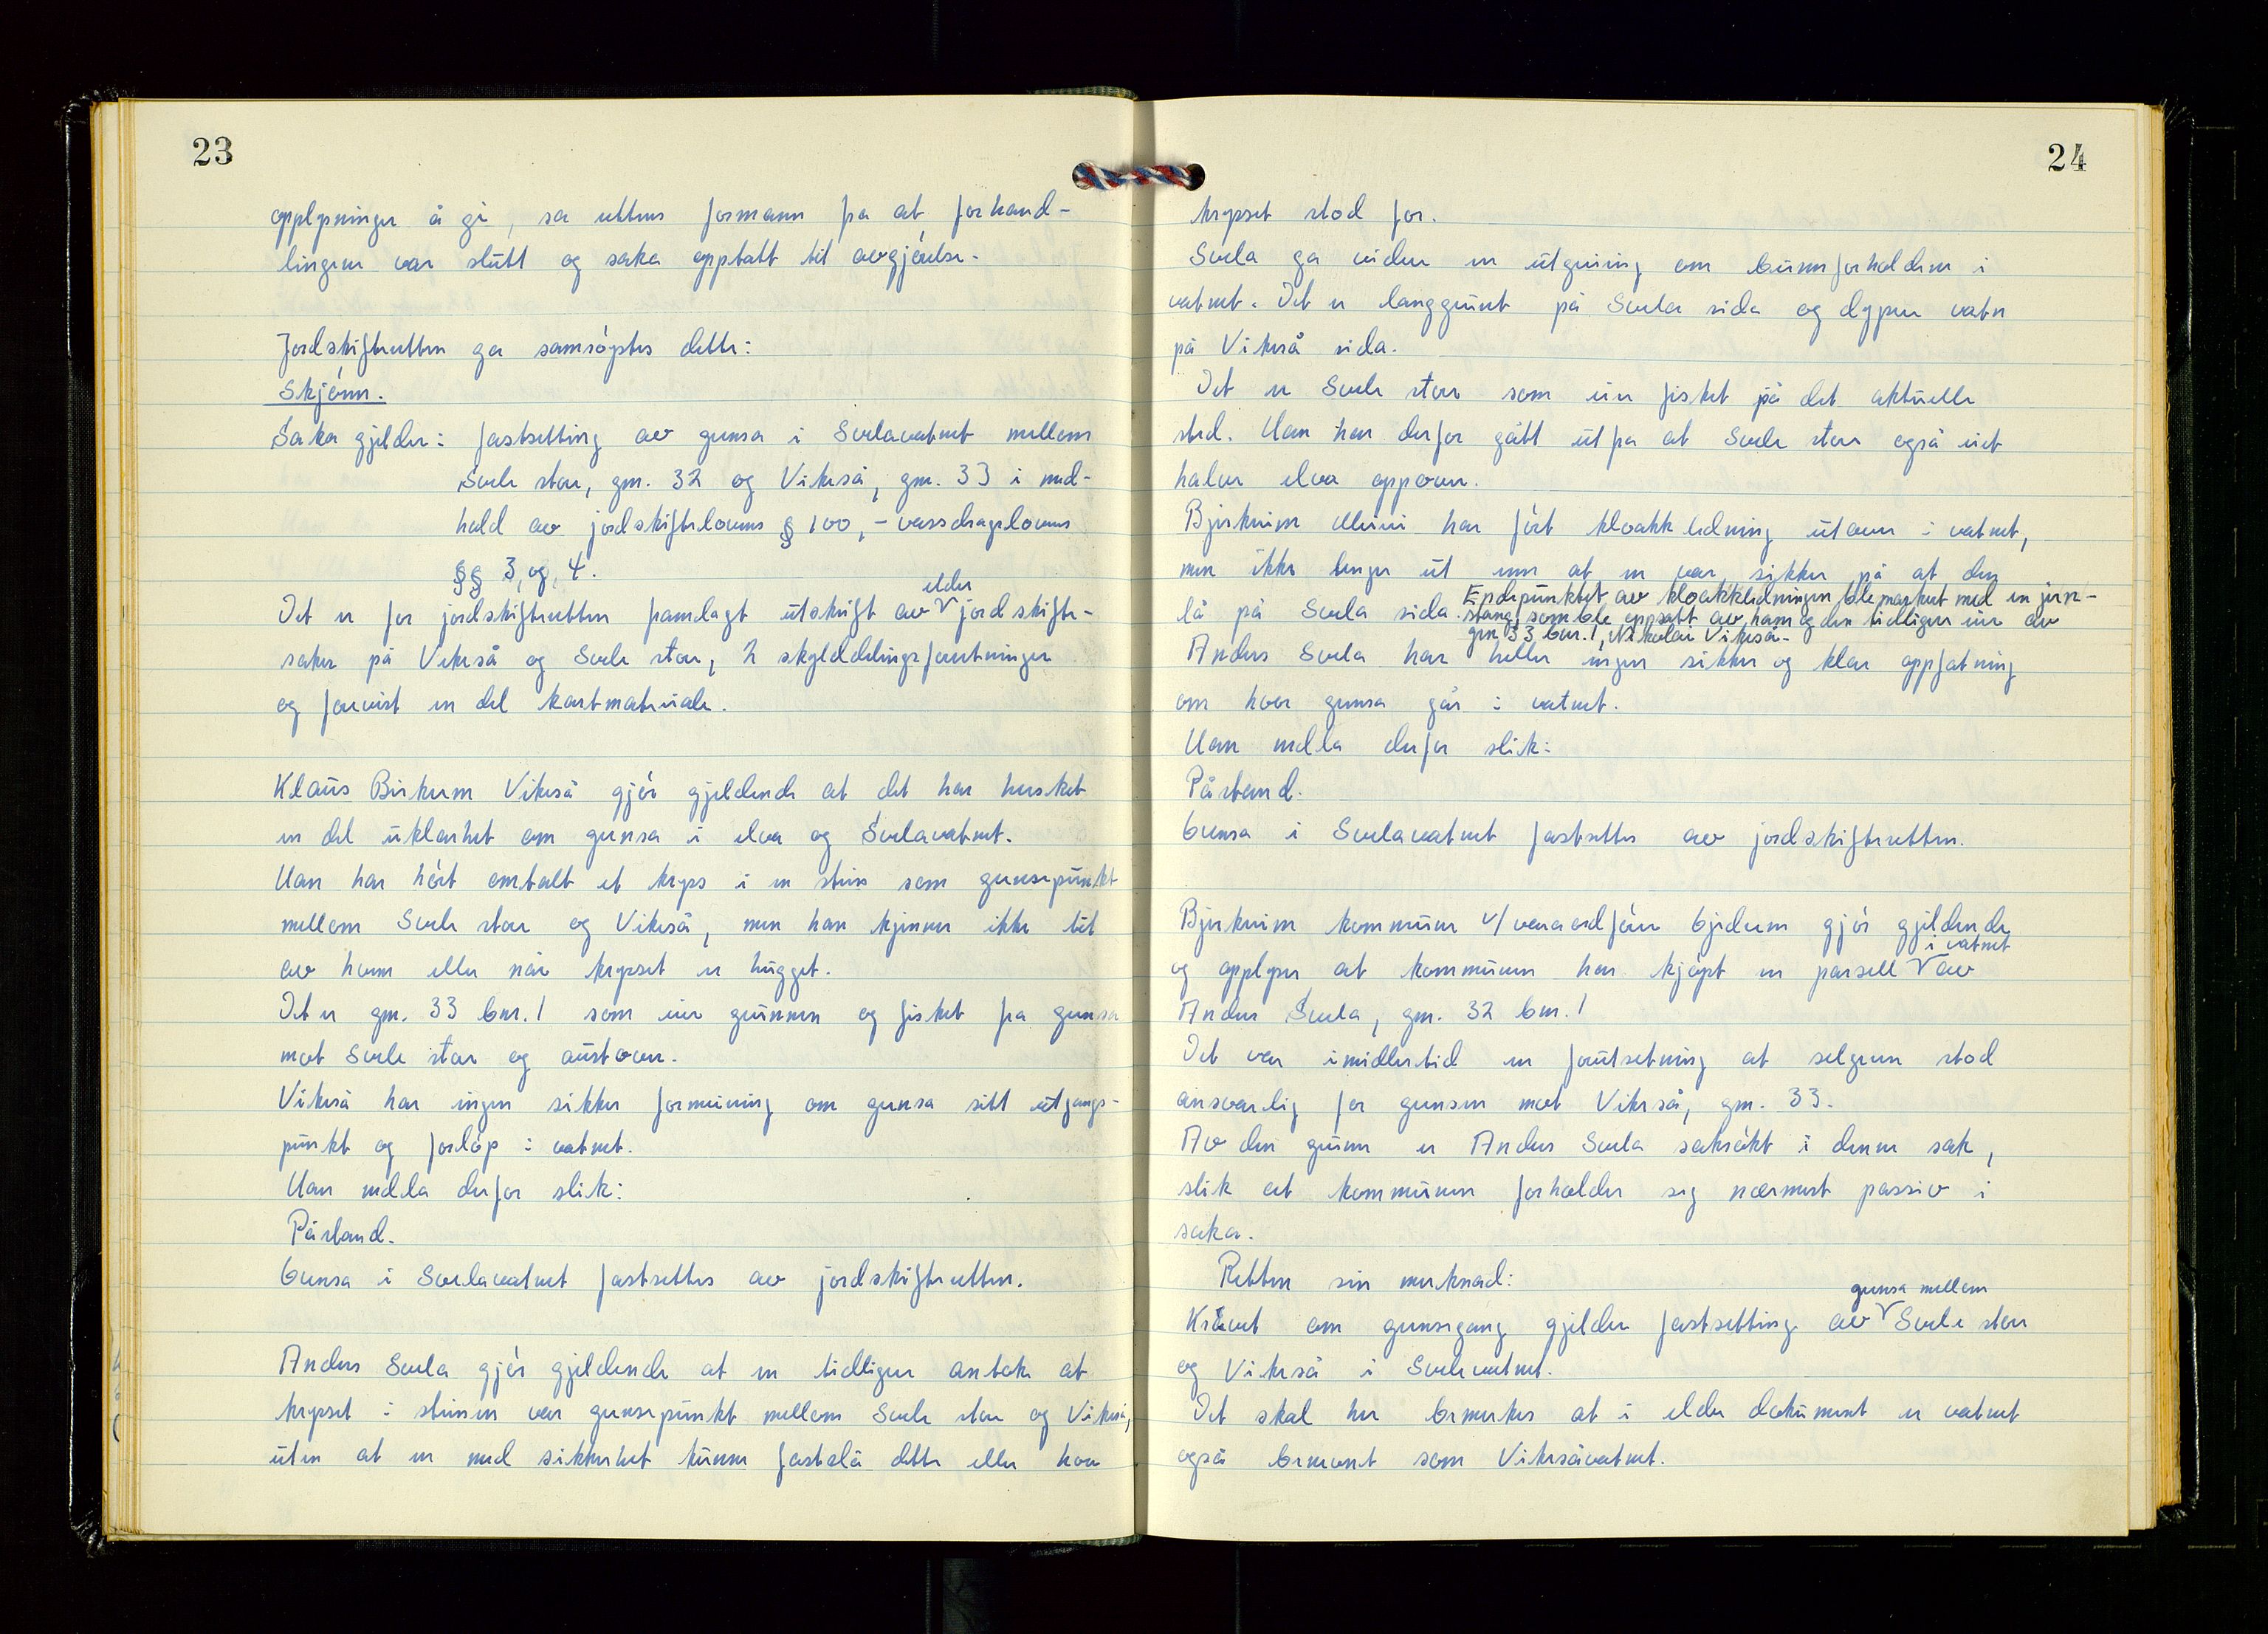 23
opplysninger å gi, sa rettens formann fra at forhand-
lingene var slutt og saka opptatt til avgjørelse.
Jordskifteretten ga samrøystes dette:
Skjønn.
Saka gjelder: fastsetting av grensa i Svelavatnet mellom
Svele store, gnr. 32 og Vikeså, gnr. 33 i med-
hold av jordskiftelovens § 100, - vassdragslovens
§§ 3, og, 4.
eldre
Det er for jordskifteretten framlagt utskrift av jordskifte-
saker på Vikeså og Svele store, 2 skylddelingsforretninger
og forevist en del kartmateriale.
Klaus Birkrem Vikeså gjør gjeldende at det har hersket
en del uklarhet om grensa i elva og Svelavatnet.
Han har hørt omtalt et kryss i en stein som grensepunkt
mellom Svele store og Vikeså, men han kjenner ikke til
av hvem eller når krysset er hugget.
Det er gnr. 33 bnr. 1 som eier grunnen og fisket fra grensa
mot Svele store og austover.
Vikeså har ingen sikker formening om grensa sitt utgangs-
punkt og forløp i vatnet.
Han nedla derfor slik:
Påstand.
Grensa i Svelavatnet fastsettes av jordskifteretten.
Anders Svela gjør gjeldende at en tidligere antok at
krysset i steinen var grensepunkt mellom Svele store og Vikeså,
uten at en med sikkerhet kunne fastslå dette eller hva
24
krysset stod for.
Svela ga videre en utgreiing om bunnforholdene i
vatnet. Det er langgrunt på Svela sida og dypere vatn
på Vikeså sida.
Det er Svele store som eier fisket på det aktuelle
sted. Han har derfor gått ut fra at Svele store også eiet
halve elva oppover.
Bjerkreim Meieri har ført kloakkledning utover i vatnet,
men ikke lenger ut enn at en var sikker på at den
lå på Svela sida. Endepunktet av kloakkledningen ble merket med en jern-
stang, som ble oppsatt av ham og den tidligere eier av
gnr. 33 bnr. 1, Nikolai Vikeså.
Anders Svela har heller ingen sikker og klar oppfatning
om hvor grensa går i vatnet.
Han nedla derfor slik:
Påstand.
Grensa i Svelavatnet fastsettes av jordskifteretten.
Bjerkreim kommune v/ varaordfører Gjedrem gjør gjeldende
i vatnet
og opplyser at kommunen har kjøpt en parsell av
Anders Svela, gnr. 32 bnr. 1
Det var imidlertid en forutsetning at selgeren stod
ansvarlig for grensen mot Vikeså, gnr. 33.
Av den grunn er Anders Svela saksøkt i denne sak,
slik at kommunen forholder seg nærmest passiv i
saka.
Retten sin merknad:
grensa mellom
Kravet om grensegang gjelder fastsetting av Svele store
og Vikeså i Svelevatnet.
Det skal her bemerkes at i eldre dokument er vatnet
også benevnt som Vikesåvatnet.